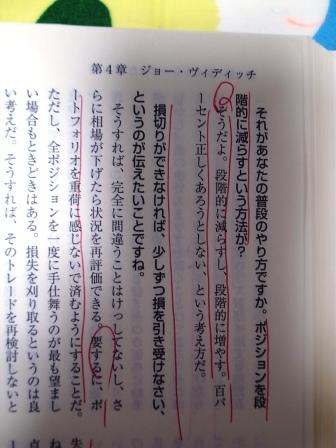 第4章　ジョー・ヴィディッチ
それがあなたの普段のやり方ですか。ポジションを段
階的に減らすという方法が？
そうだよ。段階的に減らすし、段階的に増やす。百パ
ーセント正しくあろうとしない、という考え方だ。
損切りができなければ、少しずつ損を引き受けなさい、
というのが伝えたいことですね。
そうすれば、完全に間違うことはけっしてないし、さ
らに相場が下げたら状況を再評価できる。要するに、ポ
ートフォリオを重荷に感じないで済むようにすることだ。
ただし、全ポジションを一度に手仕舞うのが最も望まし
い場合もときどきはある。損失を刈り取るというのは良
い考えだ。そうすれば、そのトレードを再検討しないと